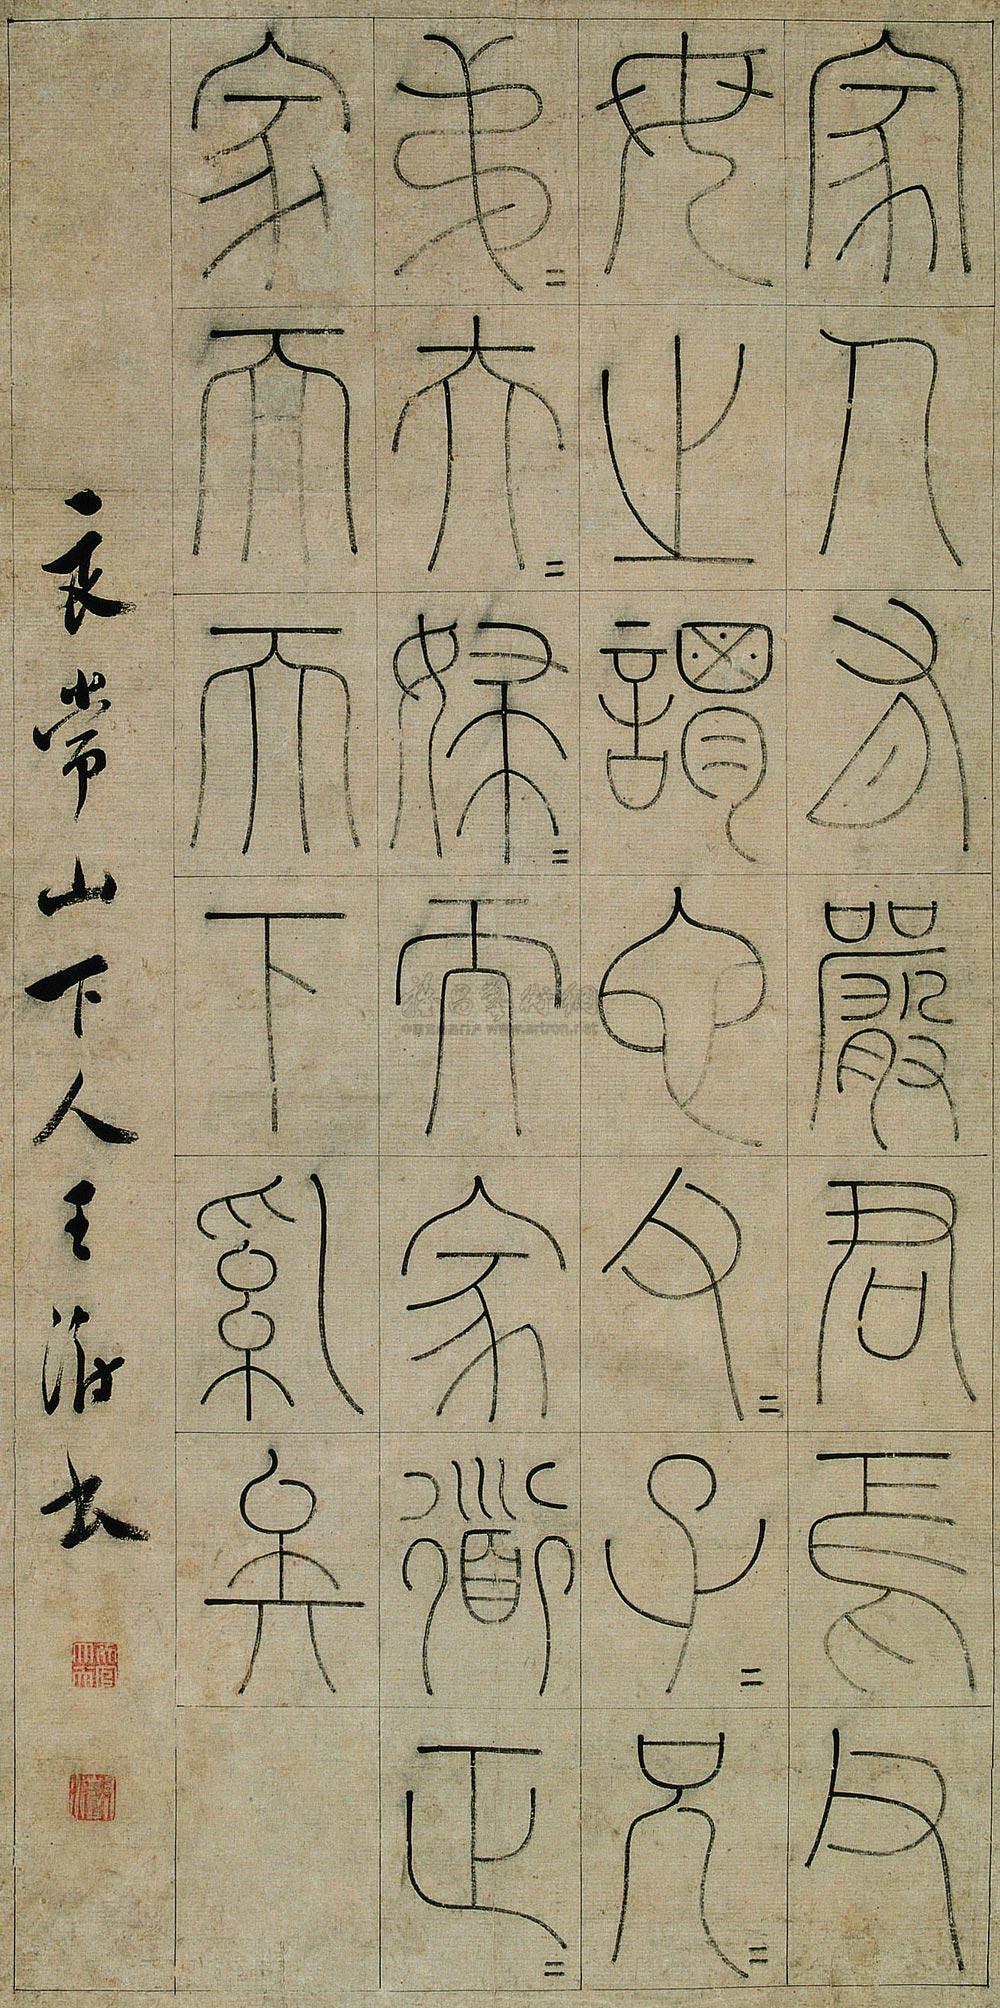 家人有嚴君焉父
母之謂也父二子二兄二
弟二夫二婦二而家道正二
家而天下矣
良常山下人王澍書
雅昌藝術網
www.artron.net